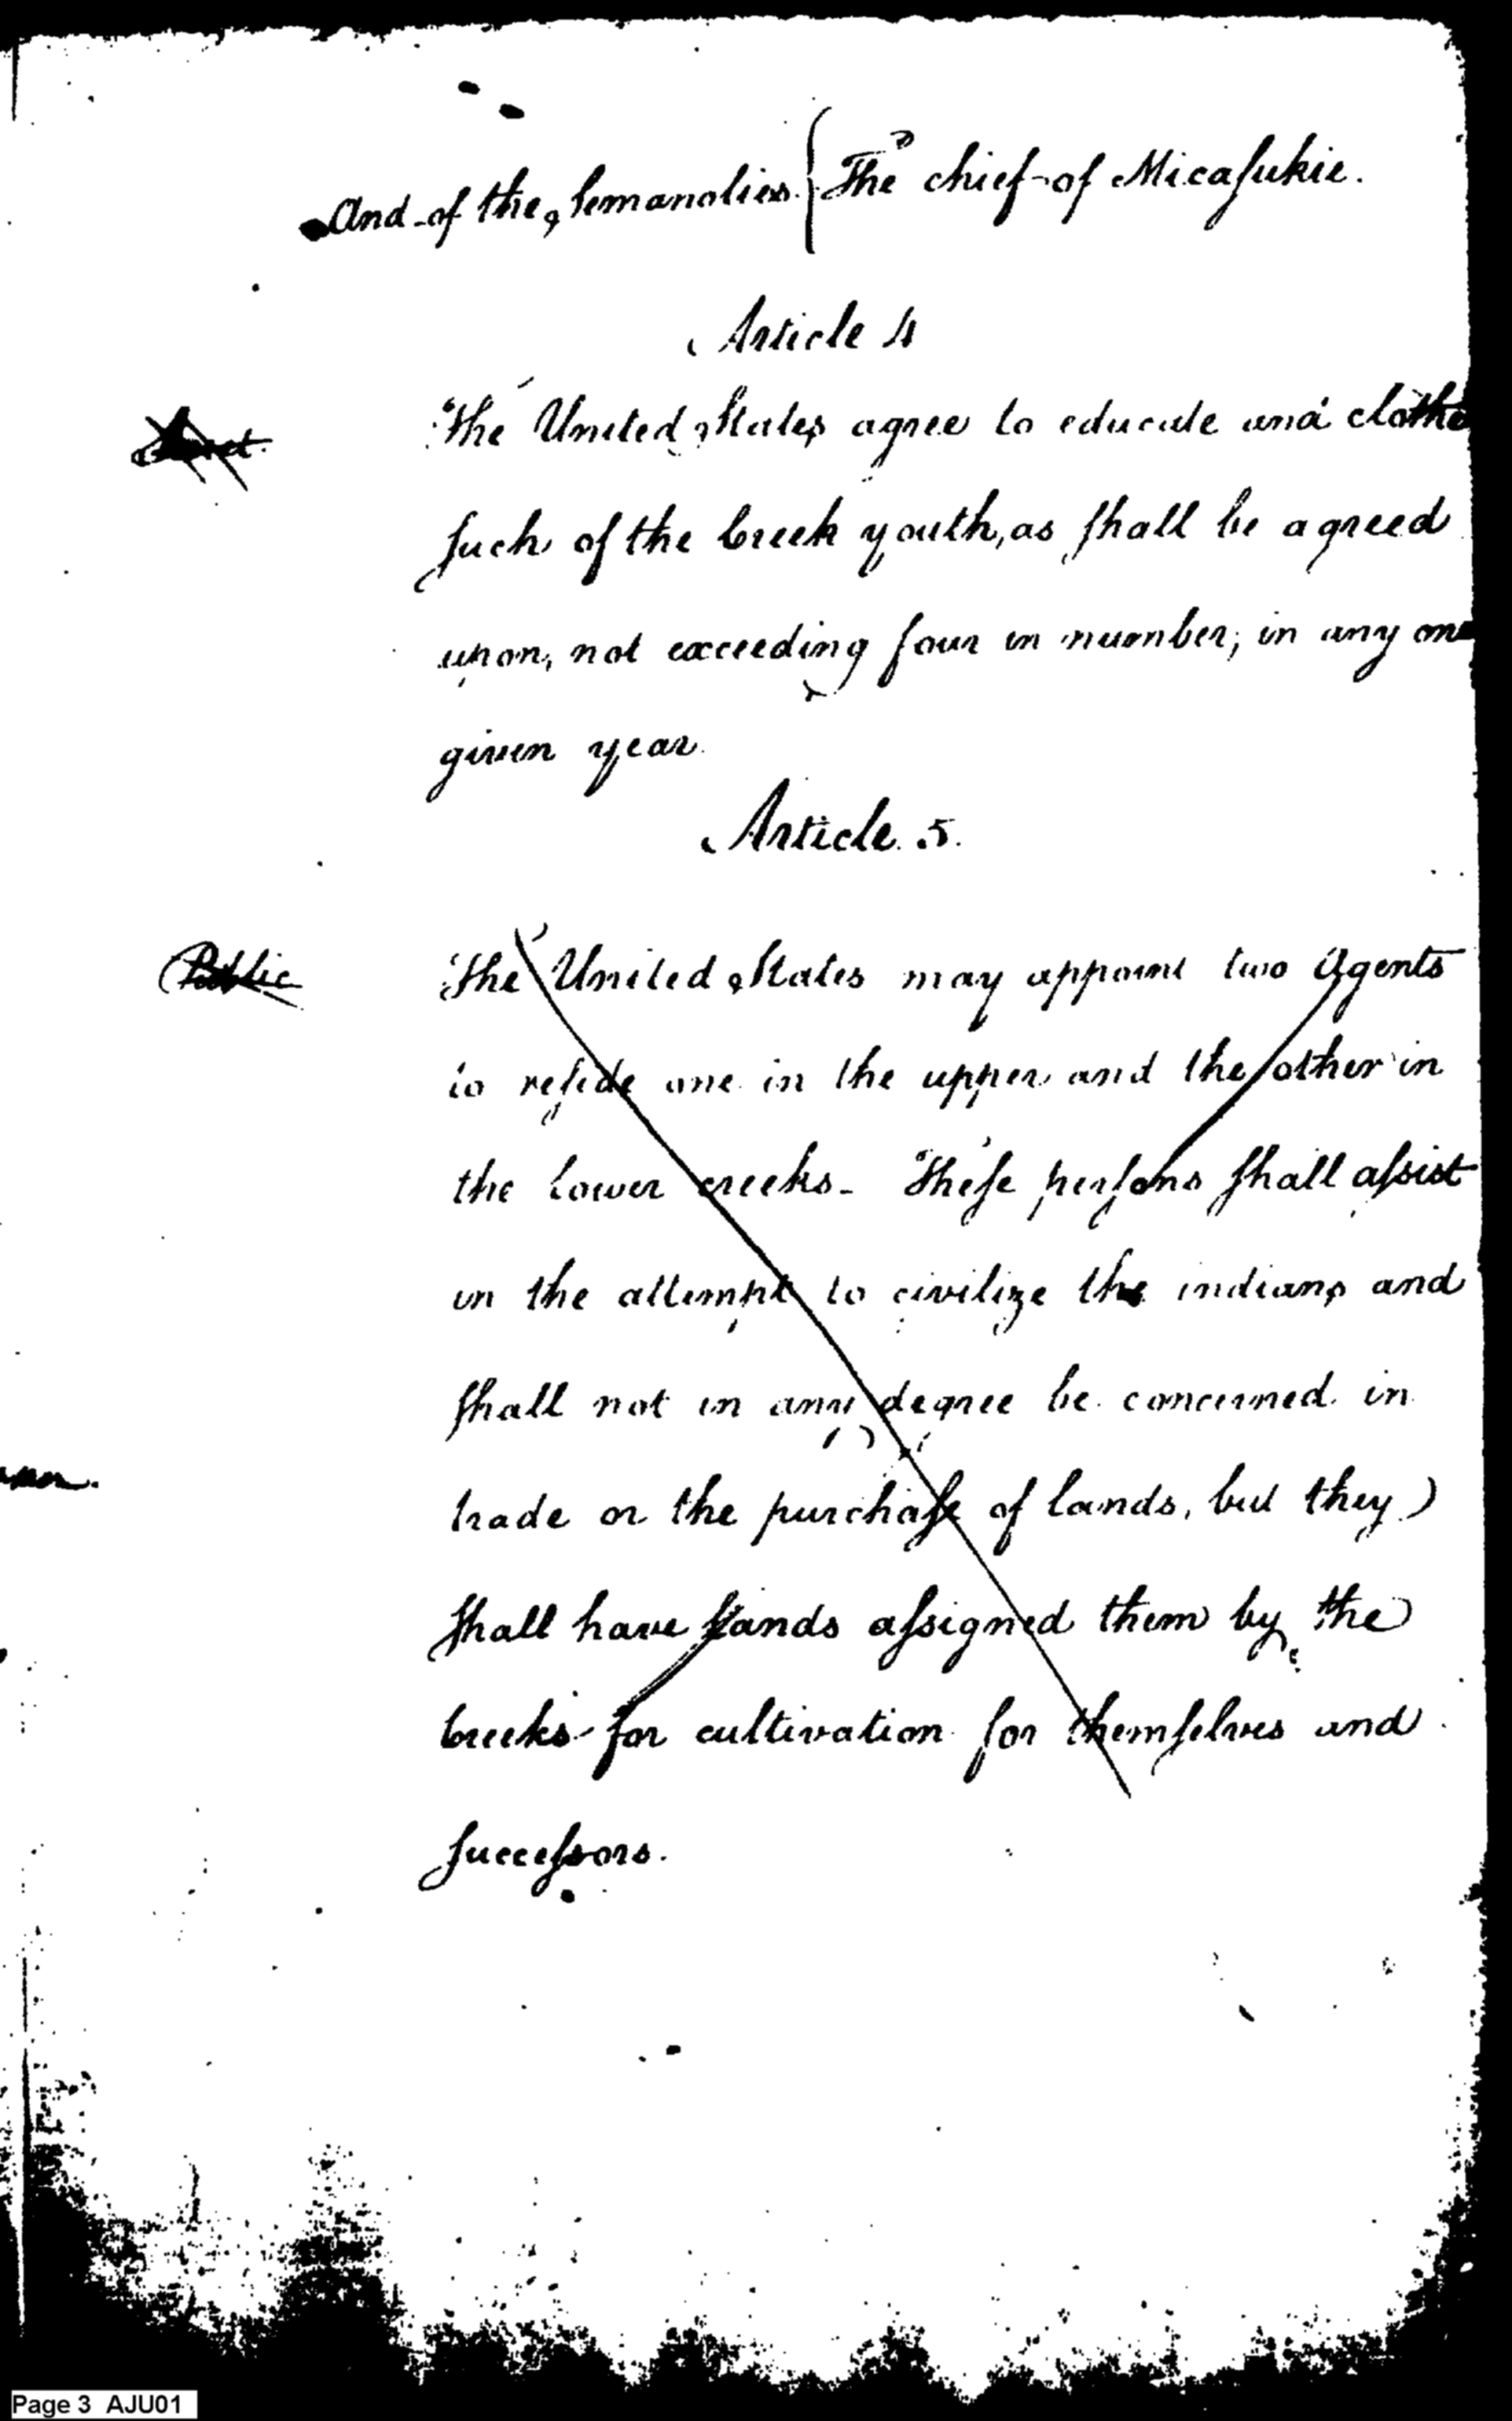 And of the Semanolies { The chief of Micasukie.
Article 4
The United States agree to educate and clothe
such of the Creek youth, as shall be agreed
upon, not exceeding four in number, in any one
given year.
Article. 5.
Public
The United States may appoint two Agents
to reside one in the upper and the other in
the lower creeks - These persons shall assist
in the attempt to civilize the indians and
shall not in any degree be concerned in
trade or the purchase of lands, but they
shall have lands assigned them by the
Creeks for cultivation for themselves and
successors.
Page 3 AJU01